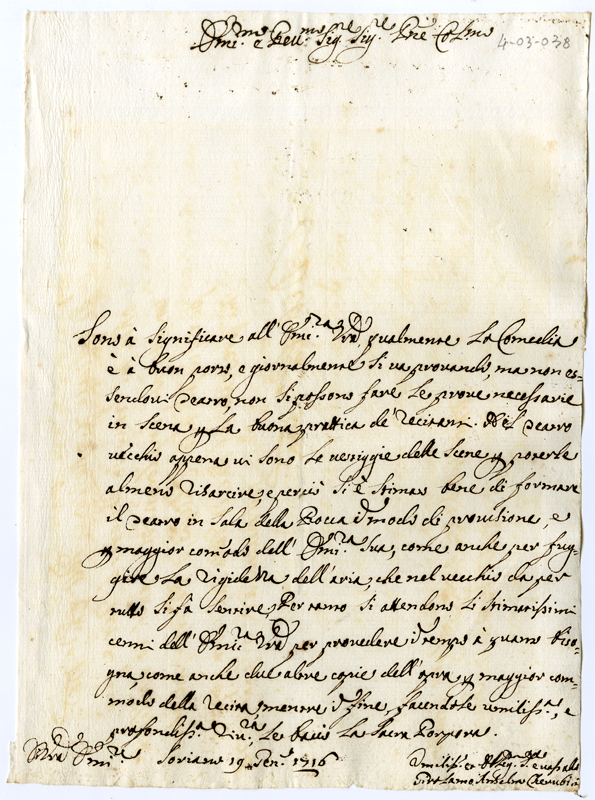 Em.mo e Rev.mo Sig.re Sig.re P.ne Col.mo
4-03-038
Sono à significare all'Em.za V.ra qualmente La Comedia
è à buon porto, e giornalmente si va provando, ma non es-
sendovi Teatro non si possono fare Le prove necessarie
in scena p La buona prattica de' Recitanti. Nel Teatro
vecchio appena vi sono Le vestigie delle Scene p poterle
almeno risarcire, e perciò si è stimato bene di formare
il Teatro in Sala della Rocca à modo di provisione, e
p maggior comodo dell'Em.za Sua, come anche per fug-
gire La rigidezza dell'aria, che nel vecchio da per
tutto si fà sentire, Per tanto si attendono Li stimatissimi
cenni dell'Em.za V.ra per provedere à tempo à quanto biso-
gna, come anche due altre copie dell'opra p maggior com-
modo della recita, mentre à fine, facendole umiliss.a, e
profondiss.a riv.za, Le bacio La Sacra Porpora.
V.ra Em.za Soriano 19 Gen.o 1716
Umiliss.o ed Obblig. e vassallo
Girolamo Anselmo Cherubini